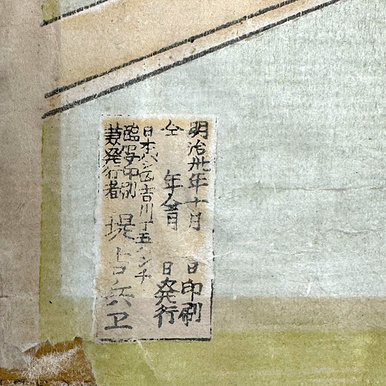 明治卅年十月 日印刷
仝 年仝月 日発行
日本バシ区吉川丁五バンチ
臨写印刷
兼発行者 堤吉兵衛